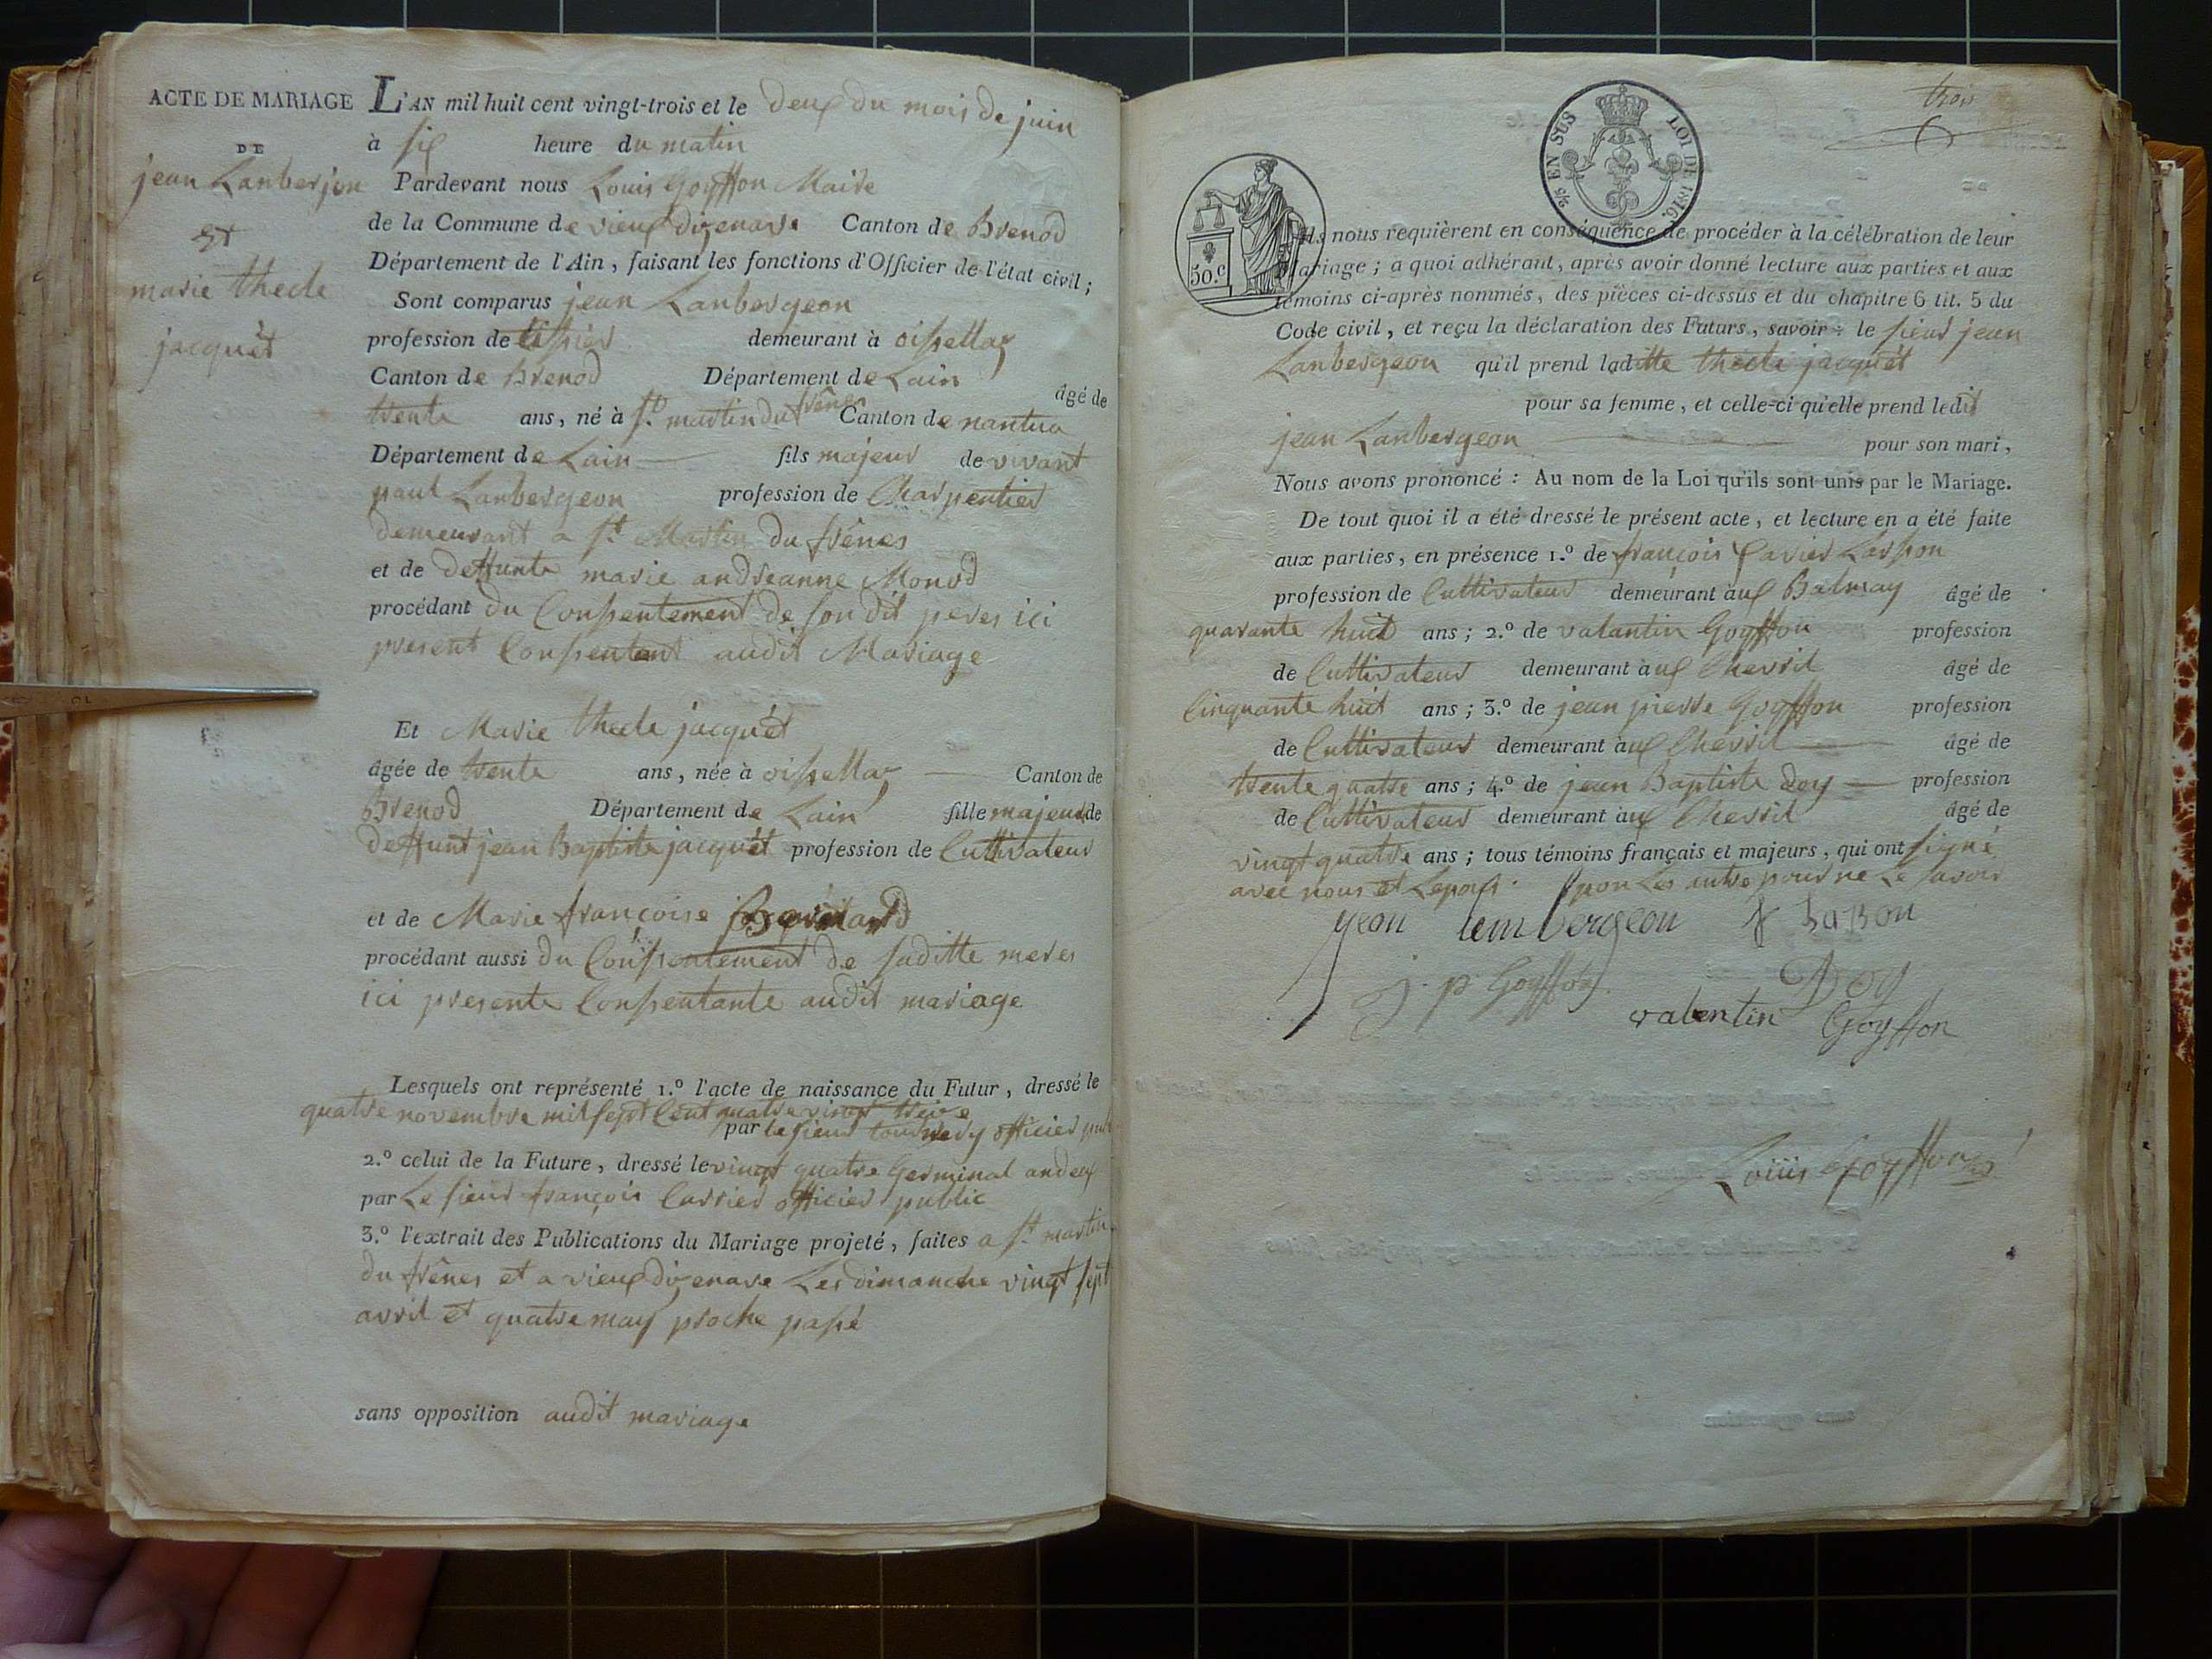 ACTE DE MARIAGE
DE
jean Lanberjon
Et
marie thecle
jacquèt
L'AN mil huit cent vingt-trois et le deux du mois de juin
à six heure du matin
Pardevant nous Louis Goyffon Maire
de la Commune de vieux dizenave Canton de Brenod
Département de l'Ain, faisant les fonctions d'Officier de l'état civil;
Sont comparus jean Lanbergeon
profession de demeurant à oissellaz
Canton de Brenod Département de Lain âgé de
trente ans, né à St. martin du frênes Canton de nantua
Département de Lain fils majeur de vivant
paul Lanbergeon profession de Charpentier
demeurant a St. Martin du frênes
et de deffunte marie andreanne Monod
procédant du Consentement de son dit peres ici
present Consentent audit Mariage
Et Marie thecle jacquèt
âgée de trente ans, née à oissellaz Canton de
Brenod Département de Lain fille majeur de
deffunt jean Baptiste jacquèt profession de Cultivateur
et de Marie françoise
procédant aussi du Consentement de saditte meres
ici presente Consentante audit mariage
Lesquels ont représenté 1.º l'acte de naissance du Futur, dressé le
quatre novembre mil sept Cent quatre vingt treize
par le sieur tournery officier
2.º celui de la Future, dressé le vingt quatre Germinal an deux
par Le sieur françois Carrier officier public
3.º l'extrait des Publications du Mariage projeté, faites a St. martin
du frênes et a vieux dizenave Les dimanche vingt sept
avril et quatre may proche passé
sans opposition audit mariage
trois
5/5 EN SUS LOI DE 1816.
50.c
Ils nous requièrent en conséquence de procéder à la célébration de leur
Mariage; à quoi adhérant, après avoir donné lecture aux parties et aux
témoins ci-après nommés, des pièces ci-dessus et du chapitre 6 tit. 5 du
Code civil, et reçu la déclaration des Futurs, savoir: le sieur jean
Lanbergeon qu'il prend laditte thecle jacquèt
pour sa femme, et celle-ci qu'elle prend ledit
jean Lanbergeon pour son mari,
Nous avons prononcé: Au nom de la Loi qu'ils sont unis par le Mariage.
De tout quoi il a été dressé le présent acte, et lecture en a été faite
aux parties, en présence 1.º de françois Xavier
profession de Cultivateur demeurant à aux Balmay âgé de
quarante huit ans; 2.º de valantin Goyffon profession
de Cultivateur demeurant à aux Chevril âgé de
Cinquante huit ans; 3.º de jean pierre Goyffon profession
de Cultivateur demeurant à aux Chevril âgé de
trente quatre ans; 4.º de jean Baptiste doy profession
de Cultivateur demeurant à aux Chevril âgé de
vingt quatre ans; tous témoins français et majeurs, qui ont signé
avec nous et Lepoux. non Les autre pour ne Le savoir
jean lembergeon
j. p Goyffon Doy
valentin Goyffon
Loüis Goyffon